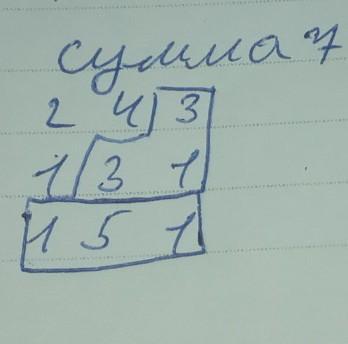 сумма 7
2 4 3
1 3 1
1 5 1